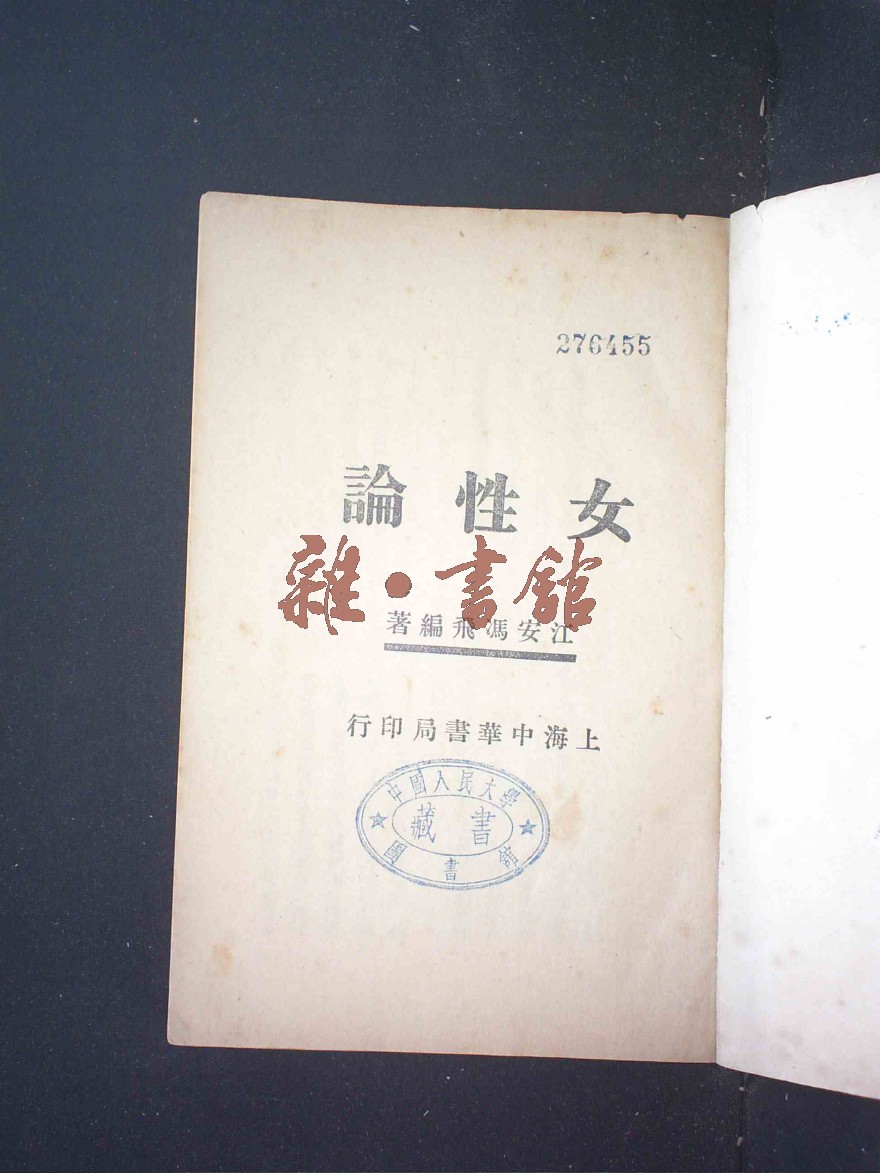 276455
女性論
雜·書館
江安馮飛編著
上海中華書局印行
中國人民大學
書藏
圖書館